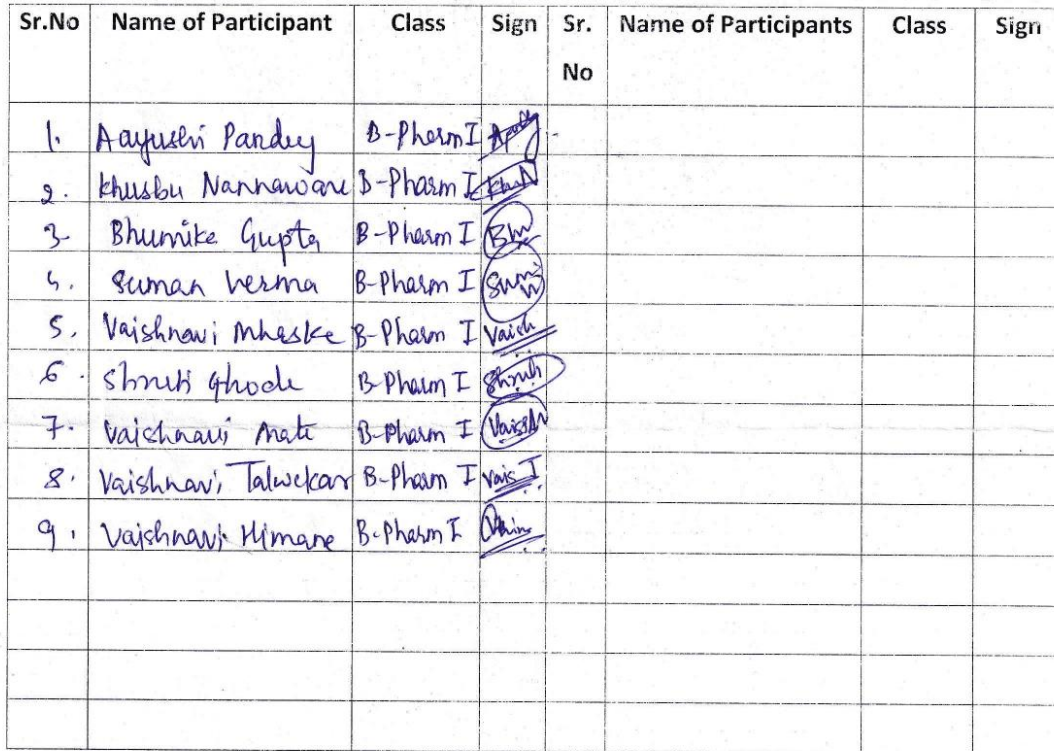 Sr.No Name of Participant Class Sign Sr. No Name of Participants Class Sign
1. Aayushi Pandey B-Pharm I
2. Khusbu Nannaware B-Pharm I
3. Bhumike Gupta B-Pharm I Bhu
4. Suman Verma B-Pharm I Suman
5. Vaishnavi Mhaske B-Pharm I Vaish
6. Shruti Ghode B-Pharm I Shruti
7. Vaishnavi Mate B-Pharm I
8. Vaishnavi Talwekar B-Pharm I
9. Vaishnavi Himane B-Pharm I